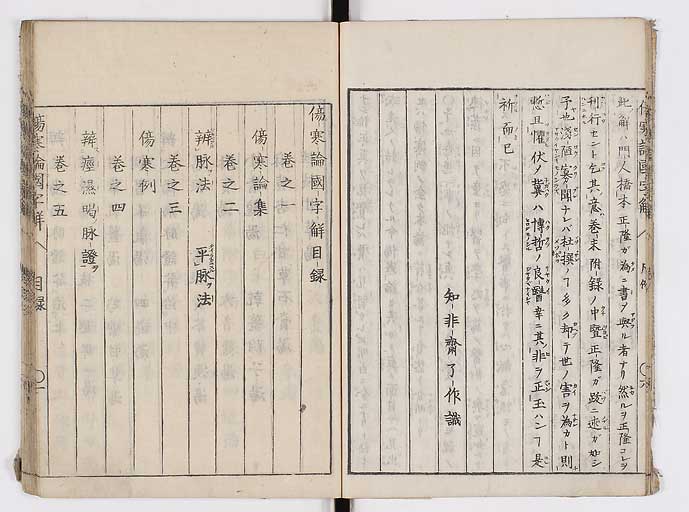 此ノ解ハ門人橋本正隆ガ為ニ書ヲ與ル者ナリ然ルヲ正隆コレヲ
刊行セント乞其ノ意巻末附録ノ中曁正隆ガ跋ニ述ガ如シ
予也淺陋寡聞ナレバ杜撰ノヿ多ク却テ世ノ害ヲ為カト則
慙且懼伏ノ冀ハ博哲ノ良醫幸ニ其ノ非ヲ正玉ハンヿ是
祈而已
知非齋了作識
傷寒論國字解目録
巻之一
傷寒論集
巻之二
辨脉法 平脉法
巻之三
傷寒例
巻之四
辨痙濕暍脉證
巻之五
傷寒論國字解 目録